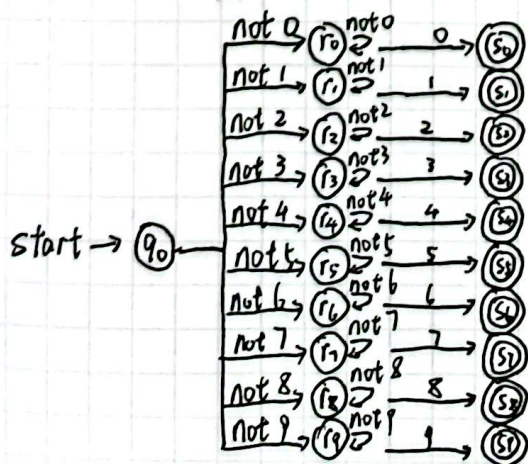 not 0 r0 not 0 0 s0
not 1 r1 not 1 1 s1
not 2 r2 not 2 2 s2
not 3 r3 not 3 3 s3
not 4 r4 not 4 4 s4
start → q0
not 5 r5 not 5 5 s5
not 6 r6 not 6 6 s6
not 7 r7 not 7 7 s7
not 8 r8 not 8 8 s8
not 9 r9 not 9 9 s9